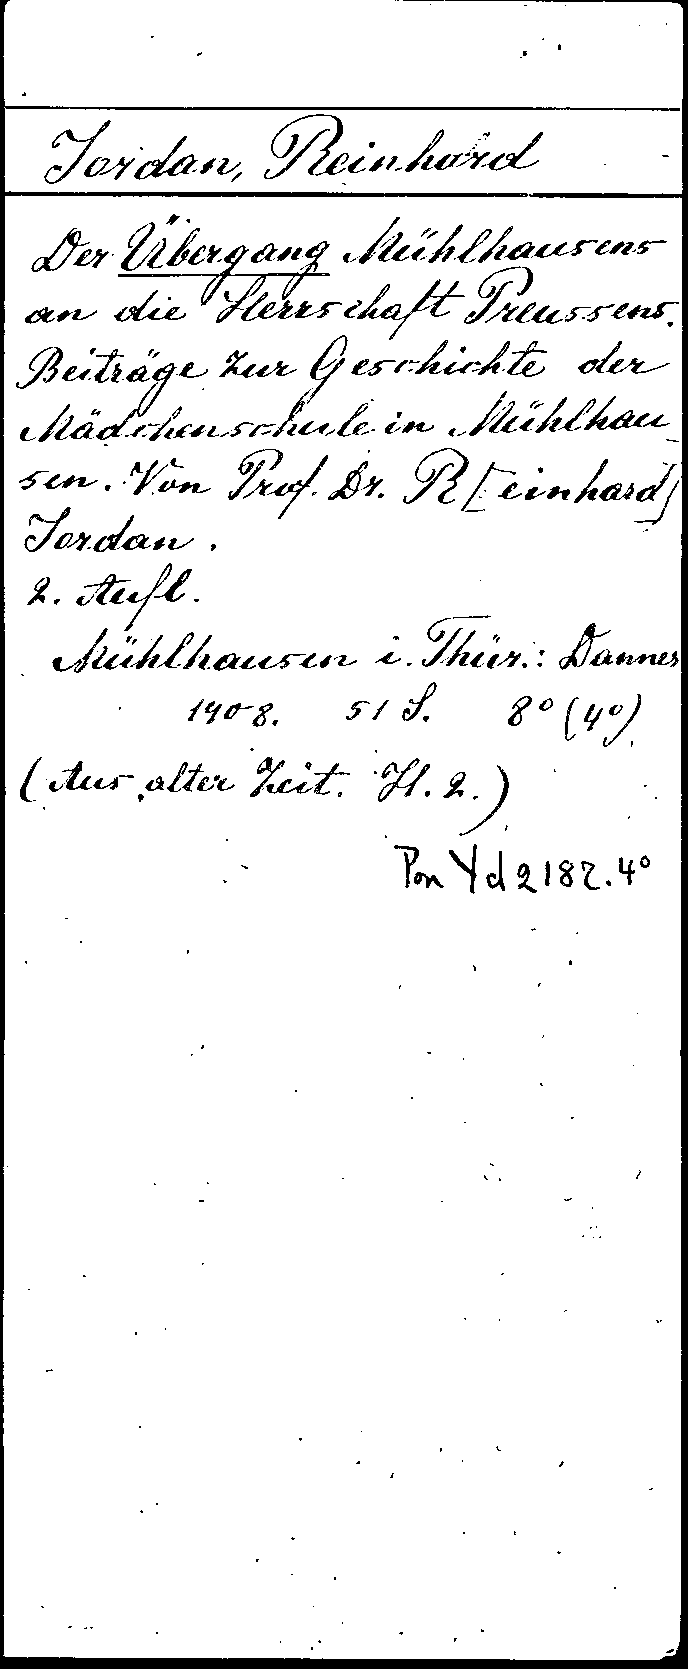 Jordan, Reinhard
Der Übergang Mühlhausens
an die Herrschaft Preussens.
Beiträge zur Geschichte der
Mädchenschule in Mühlhau-
sen. Von Prof. Dr. R[einhard]
Jordan.
2. Aufl.
Mühlhausen i. Thür.: Danner
1908. 51 S. 8° (4°)
(Aus alter Zeit. H. 2.)
Pon Yd 2182.4°